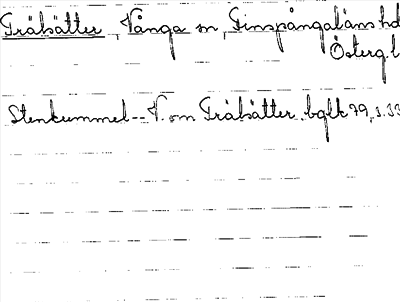 Gråsätter, Vånga sn, Finspångaläns hd
Österg.l
Stenkummel--V. om Gråsätter. bglk 79, s. 33